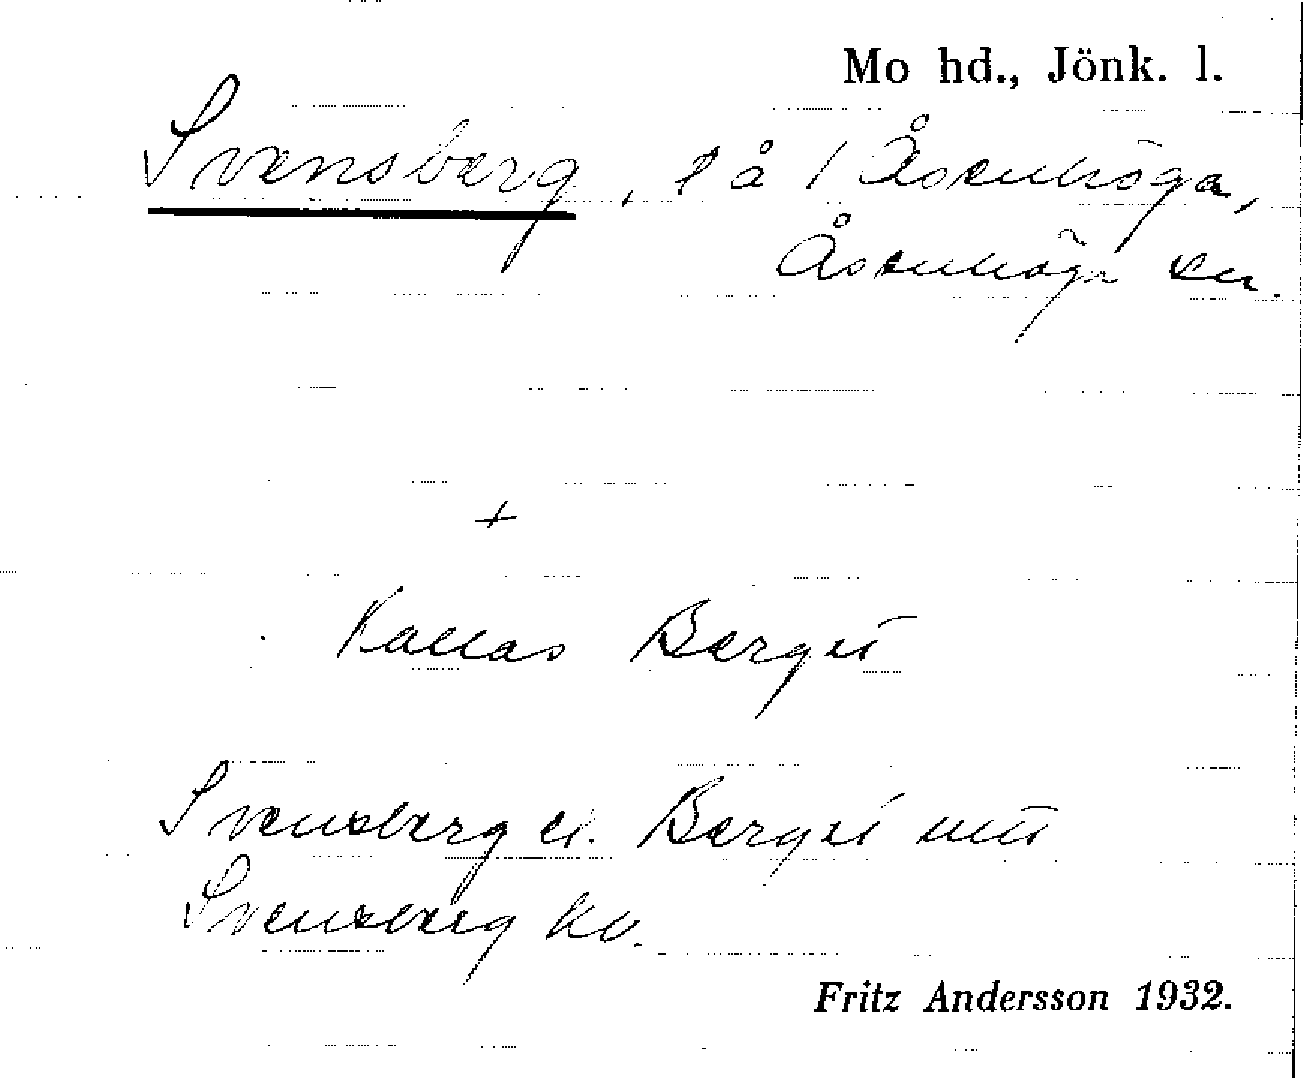 Mo hd., Jönk. l.
Svensberg, på / Åsenhöga,
Åsenhöga sn.
+
Kallas Berget
Svensberg el. Berget
Svensberg
Fritz Andersson 1932.